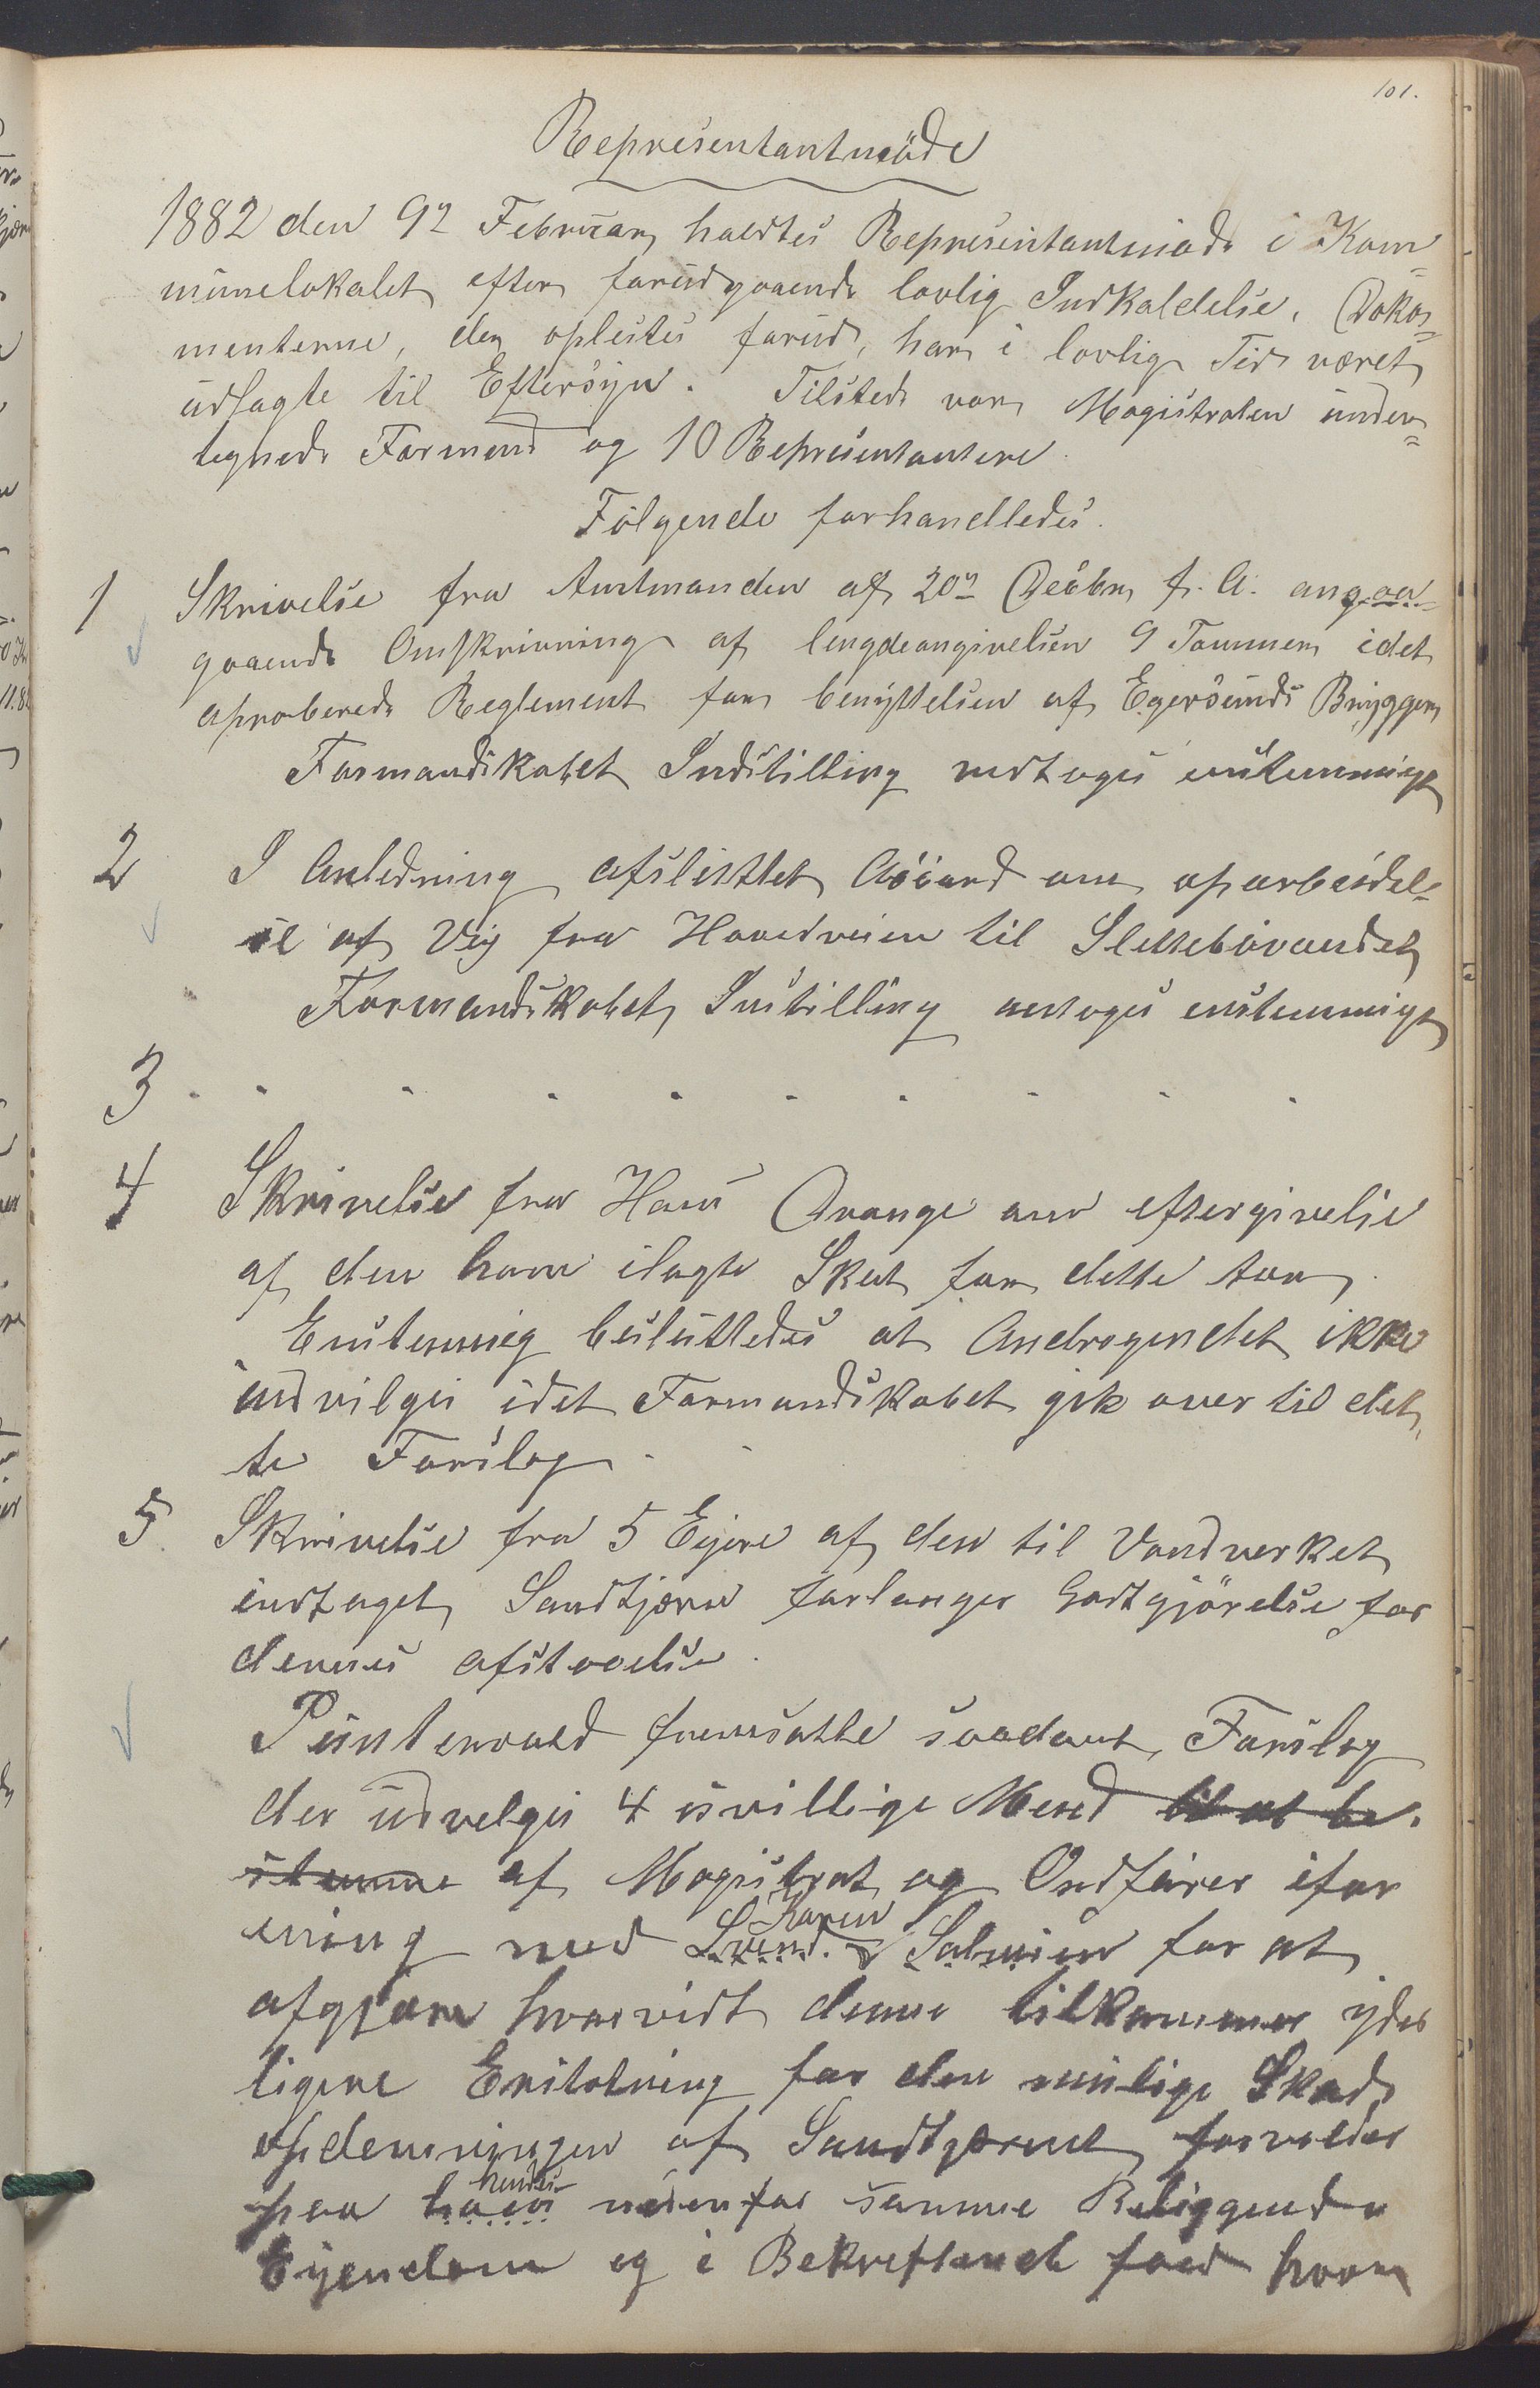 101.
Repræsentantmöde
1882 den 9de Februar holdtes Repræsentantmöde i Kom=
munelokalet efter forudgaaende lovlig Indkaldelse. Doku=
menterne, der oplestes forud, har i lovlig Tid været
udlagte til Eftersyn. Tilstede var Magistraten under=
tegnede Formend og 10 Repræsentantere.
Fölgende forhandledes.
1 Skrivelse fra Amtmanden af 20de Decbr f. A. angaa=
gaaende Omskrivning af lengdeangivelsen 9 Tommer i det
aproberede Reglement for benyttelsen af Egersunds Brygger
Formandskabet Indstilling vedtoges enstemmigt
2 I Anledning afsluttet Accord om oparbeidel=
se af Vej fra Hovedveien til Slettebövandet
Formandskabet Instilling antoges enstemmigt
3 . . . . . . . . . .
4 Skrivelse fra Hans Drange om eftergivelse
af den ham ilagte Skat for dette Aar.
Enstemmig besluttedes at Andragendet ikke
indvilges idet Formandskabet gik over til det,
te Forslag.
5. Skrivelse fra 5 Eijere af den til Vandverket
indtaget Sandtjern forlanger Godtgjörelse for
dennes afstaaelse.
Puntervold fremsatte saadant Forslag
der udvelges 4 uvillige Mend til at be.
stemme af Magistrat og Ordförer i for
ening med Svend. Karen Salmien for at
afgjöre hvorvidt denne tilkommer yder
ligere Erstatning for den mulige Skade
opdemningen af Sandtjernet forvolder
paa hans hendes nedenfor samme Beliggende
Eijendom og i Bekreftende fald hvor